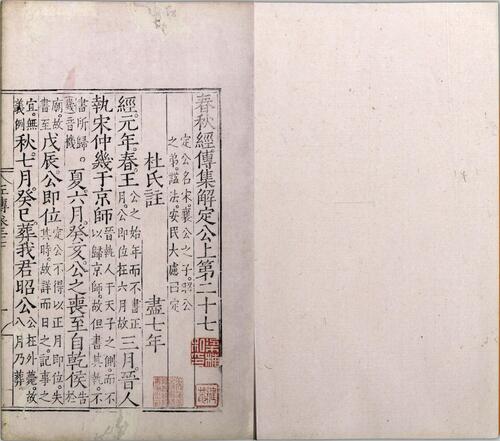 春秋經傳集解定公上第二十七
定公名宋襄公之子昭公
之弟謚法安民大慮曰定
杜氏註 盡七年
經元年春王公之始年而不書正月公即位在六月故三月晉人
執宋仲幾于京師晉執人于天子之側而不以歸京師故但書其執不
書所歸幾音機夏六月癸亥公之喪至自乾侯告於
廟故書至戊辰公即位定公不得以正月即位失其時故詳而日之記事之
宜無義例秋七月癸巳葬我君昭公公在外薨故八月乃葬